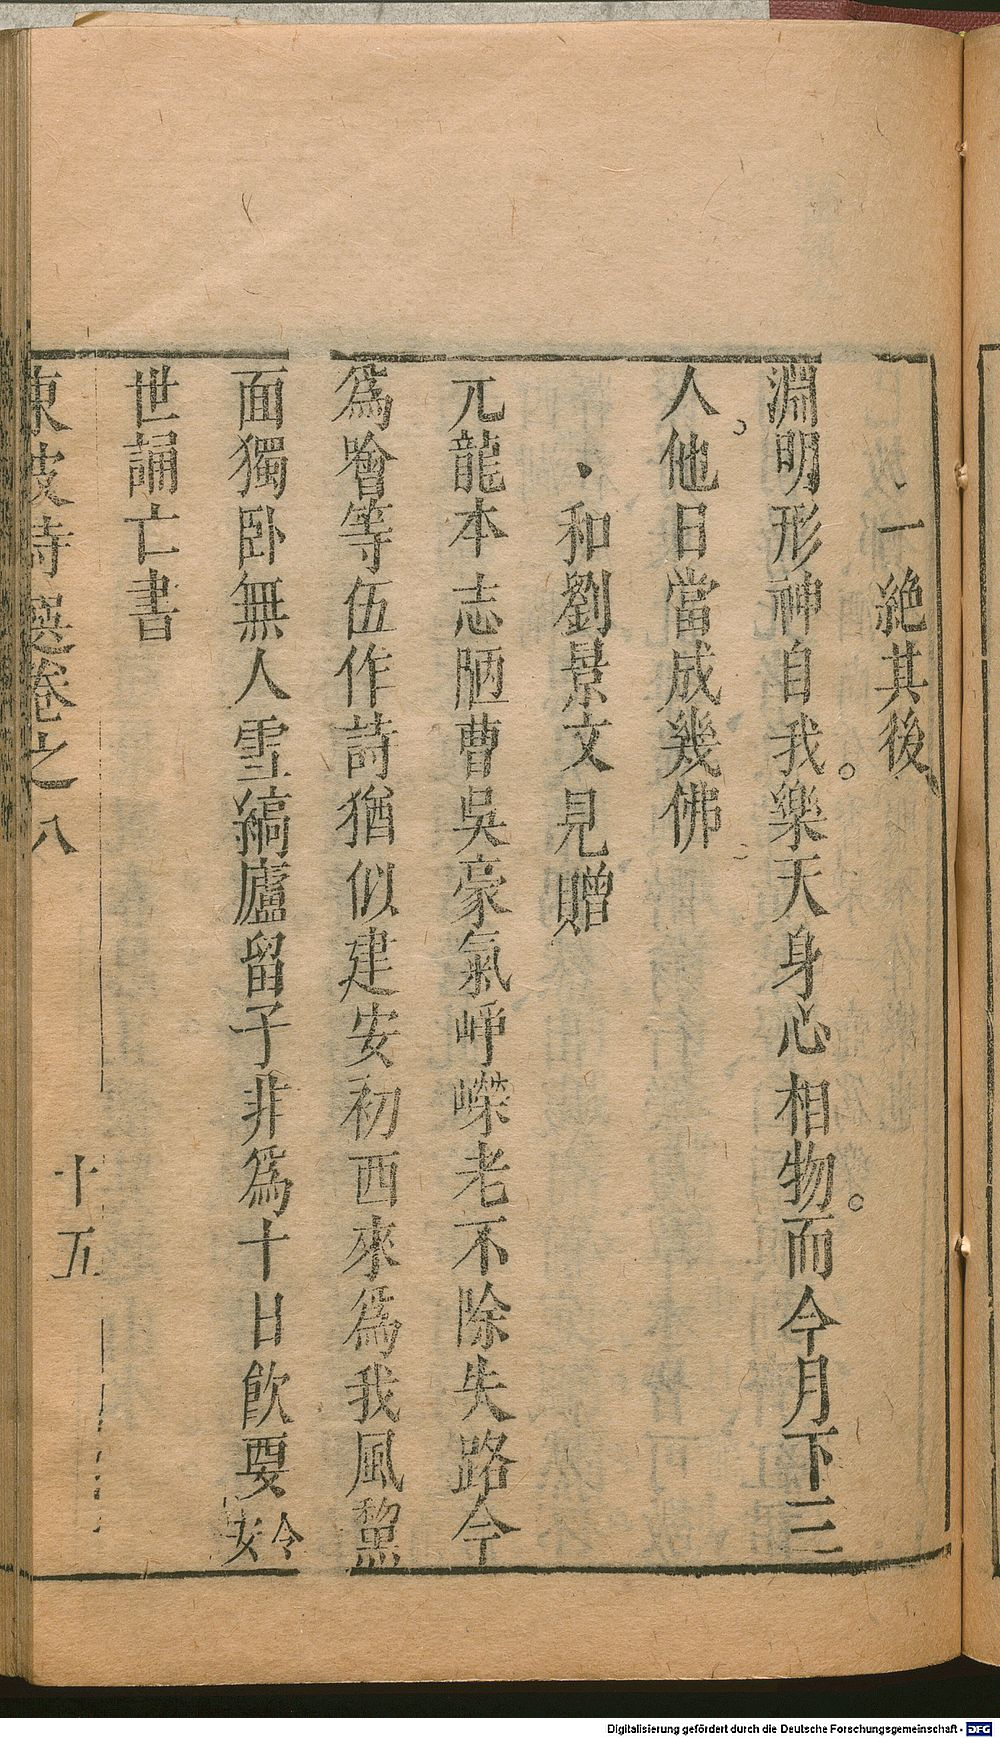 一絶其後
淵明形神自我。樂天身心相物。而今月下三
人。他日當成幾佛
和劉景文見贈
元龍本志陋曹吳豪氣崢嶸老不除失路今
爲噲等伍作詩猶似建安初西來爲我風黧
面獨卧無人雪縞廬留子非爲十日飮要令安
世誦亡書
東坡詩選卷之八
十五
Digitalisierung gefördert durch die Deutsche Forschungsgemeinschaft - DFG